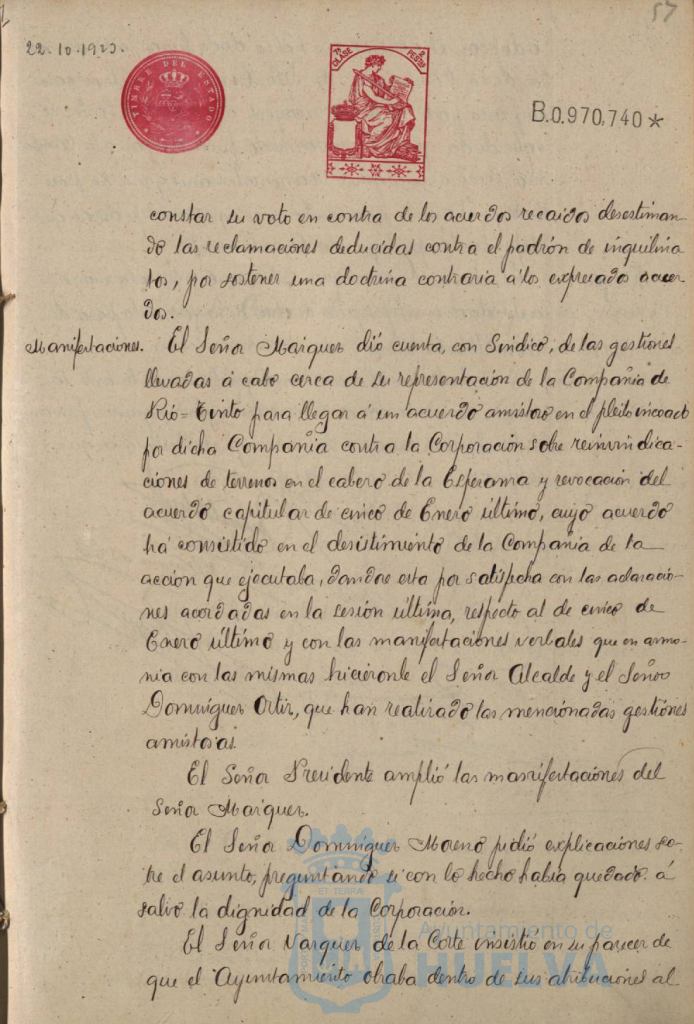 57
22.10.1923.
TIMBRE DEL ESTADO
7ª CLASE
2 PESTAS
B.0.970,740*
constar su voto en contra de los acuerdos recaidos desestiman
do las reclamaciones deducidas contra el padrón de inquilina
tos, por sostener una doctrina contraria á los expresados acuer
dos.
Manifestaciones. El Señor Marquez dió cuenta, con Sindico, de las gestiones
llevadas á cabo cerca de su representación de la Compañia de
Rio=Tinto para llegar á un acuerdo amistoso en el pleito incoado
por dicha Compañia contra la Corporación sobre reinvindica-
ciones de terrenos en el cabezo de la Esperanza y revocación del
acuerdo capitular de cinco de Enero último, cuyo acuerdo
há consistido en el desistimiento de la Compañia de la
acción que ejecutaba, dandose esta por satisfecha con las aclaracio-
nes acordadas en la sesión última, respecto al de cinco de
Enero último y con las manifestaciones verbales que en armo-
nia con las mismas hicieronle el Señor Alcalde y el Señor
Dominguez Ortiz, que han realizado las mencionadas gestiones
amistosas.
El Señor Presidente amplió las manifestaciones del
Señor Marquez.
El Señor Dominguez Moreno pidió explicaciones so-
bre el asunto, preguntando si con lo hecho habia quedado á
salvo la dignidad de la Corporación.
El Señor Marquez de la Corte insistió en su parecer de
que el Ayuntamiento obraba dentro de sus atribuciones al
Ayuntamiento de
HUELVA